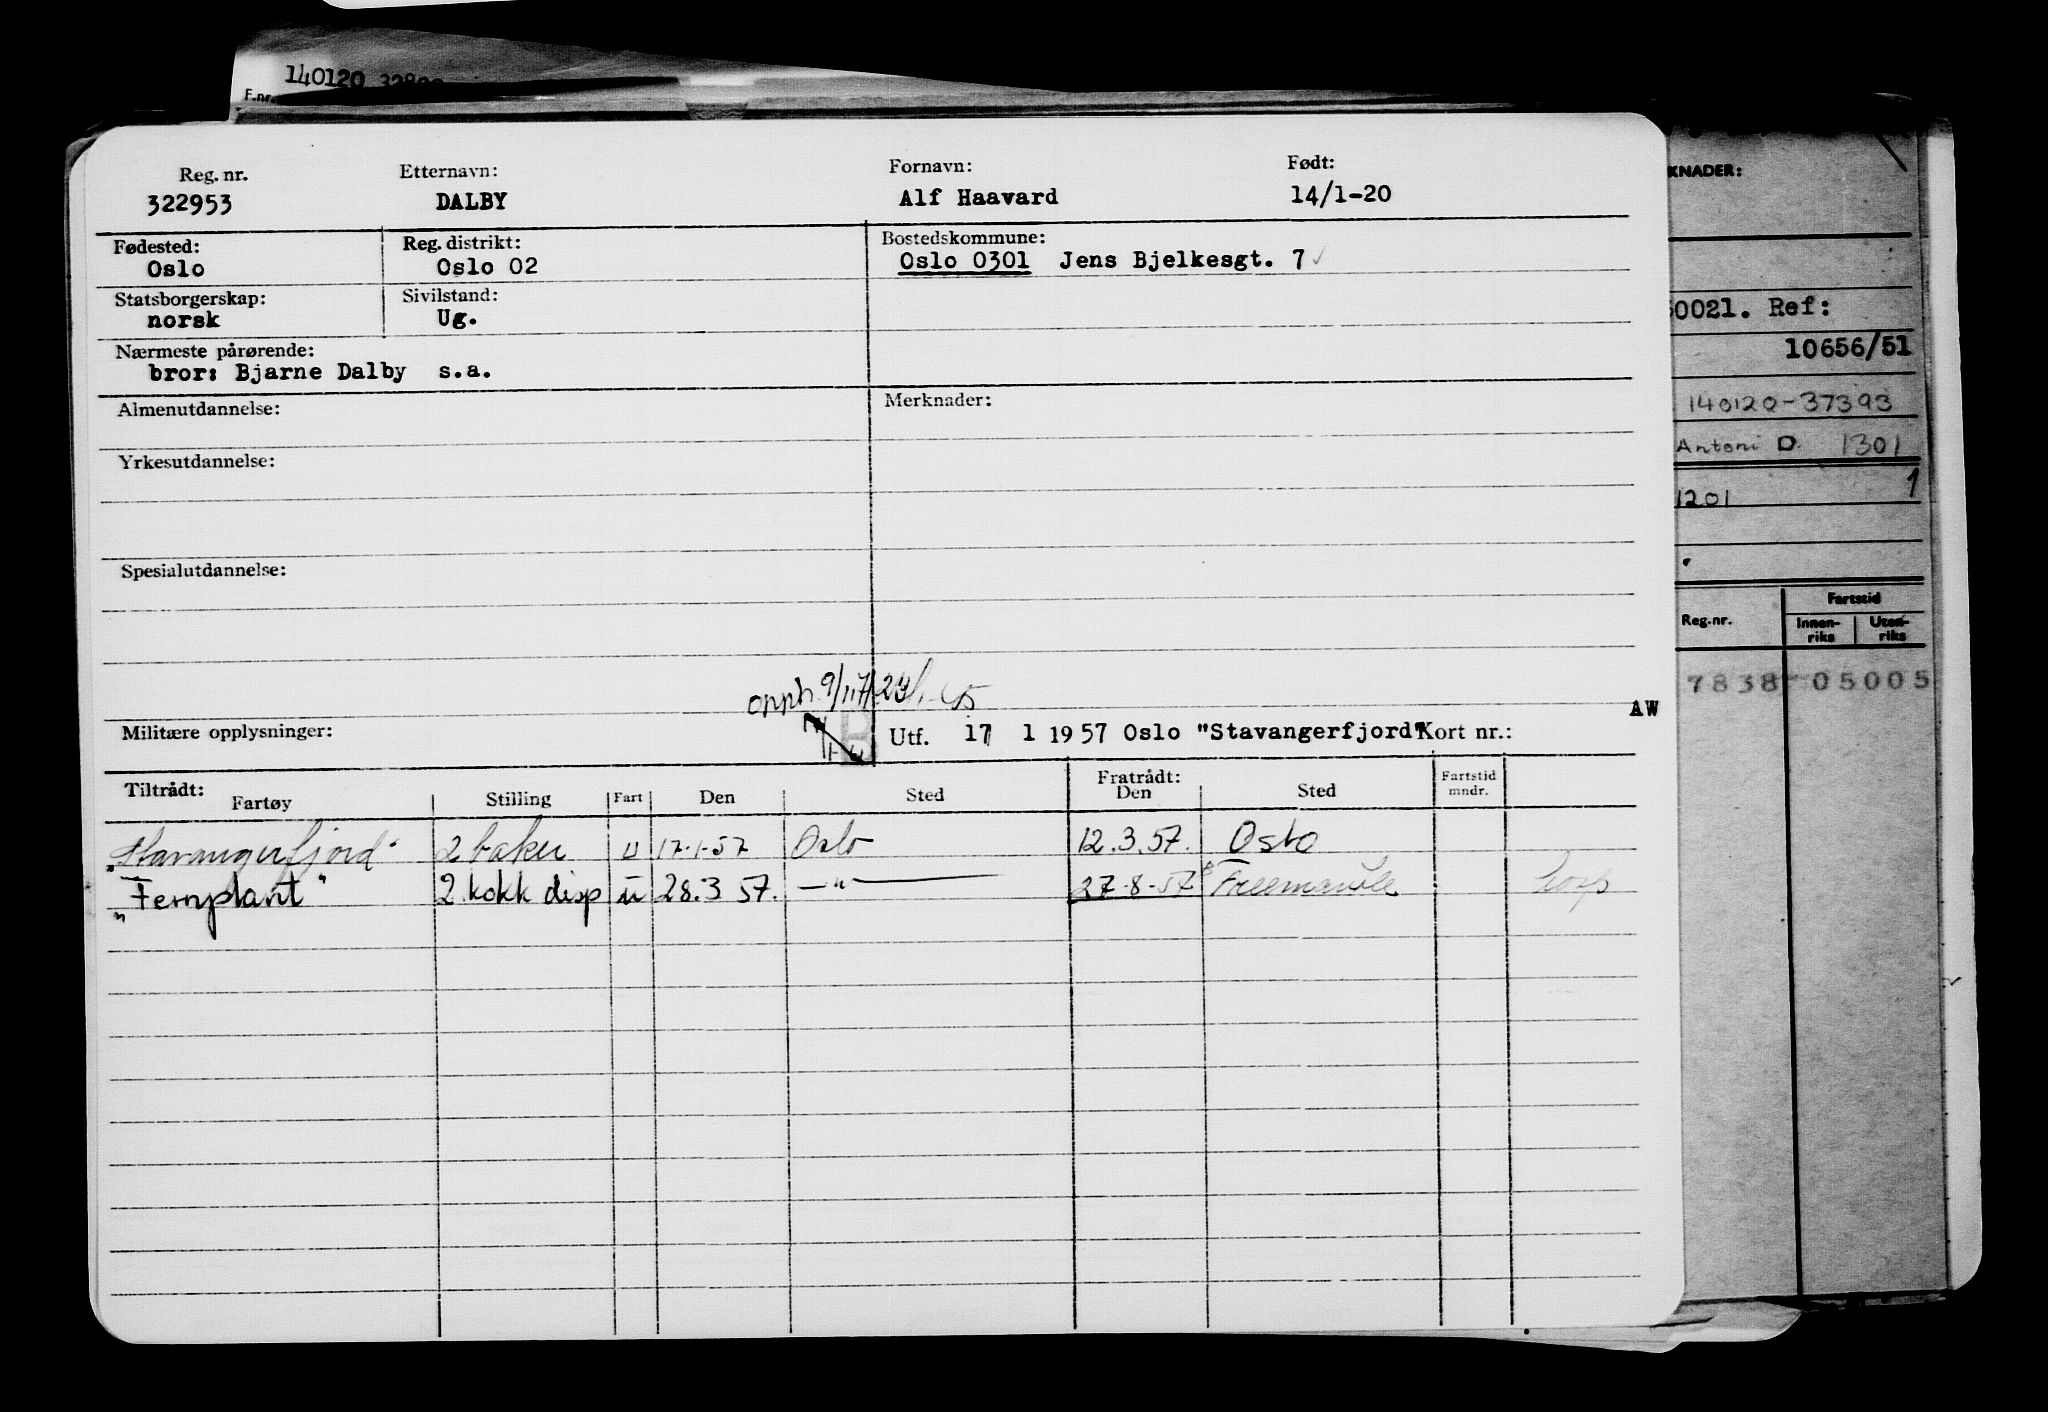 140120
F.nr.
Reg. nr. Etternavn: Fornavn: Født:
322953 DALBY Alf Haavard 14/1-20
Fødested: Reg. distrikt: Bostedskommune:
Oslo Oslo 02 Oslo 0301 Jens Bjelkesgt. 7
Statsborgerskap: Sivilstand:
norsk Ug.
Nærmeste pårørende:
bror: Bjarne Dalby s.a.
Almenutdannelse: Merknader:
Yrkesutdannelse:
Spesialutdannelse:
opph.
AW
Militære opplysninger: Utf. 17 1 1957 Oslo "Stavangerfjord" Kort nr.:
Tiltrådt: Fratrådt: Fartstid
Fartøy Stilling Fart Den Sted Den Sted mndr.
"Stavangerfjord" 2 baker u 17-1-57 Oslo 12.3.57. Oslo
"Fernplant" 2 kokk disp u 28.3 57. —"— 27-8-57 Freemantle
KNADER:
0021. Ref:
10656/51
140120-37393
Antoni D. 1301
1201 1
Reg.nr. Fartstid
Innen-riks Uten-riks
7838 05005